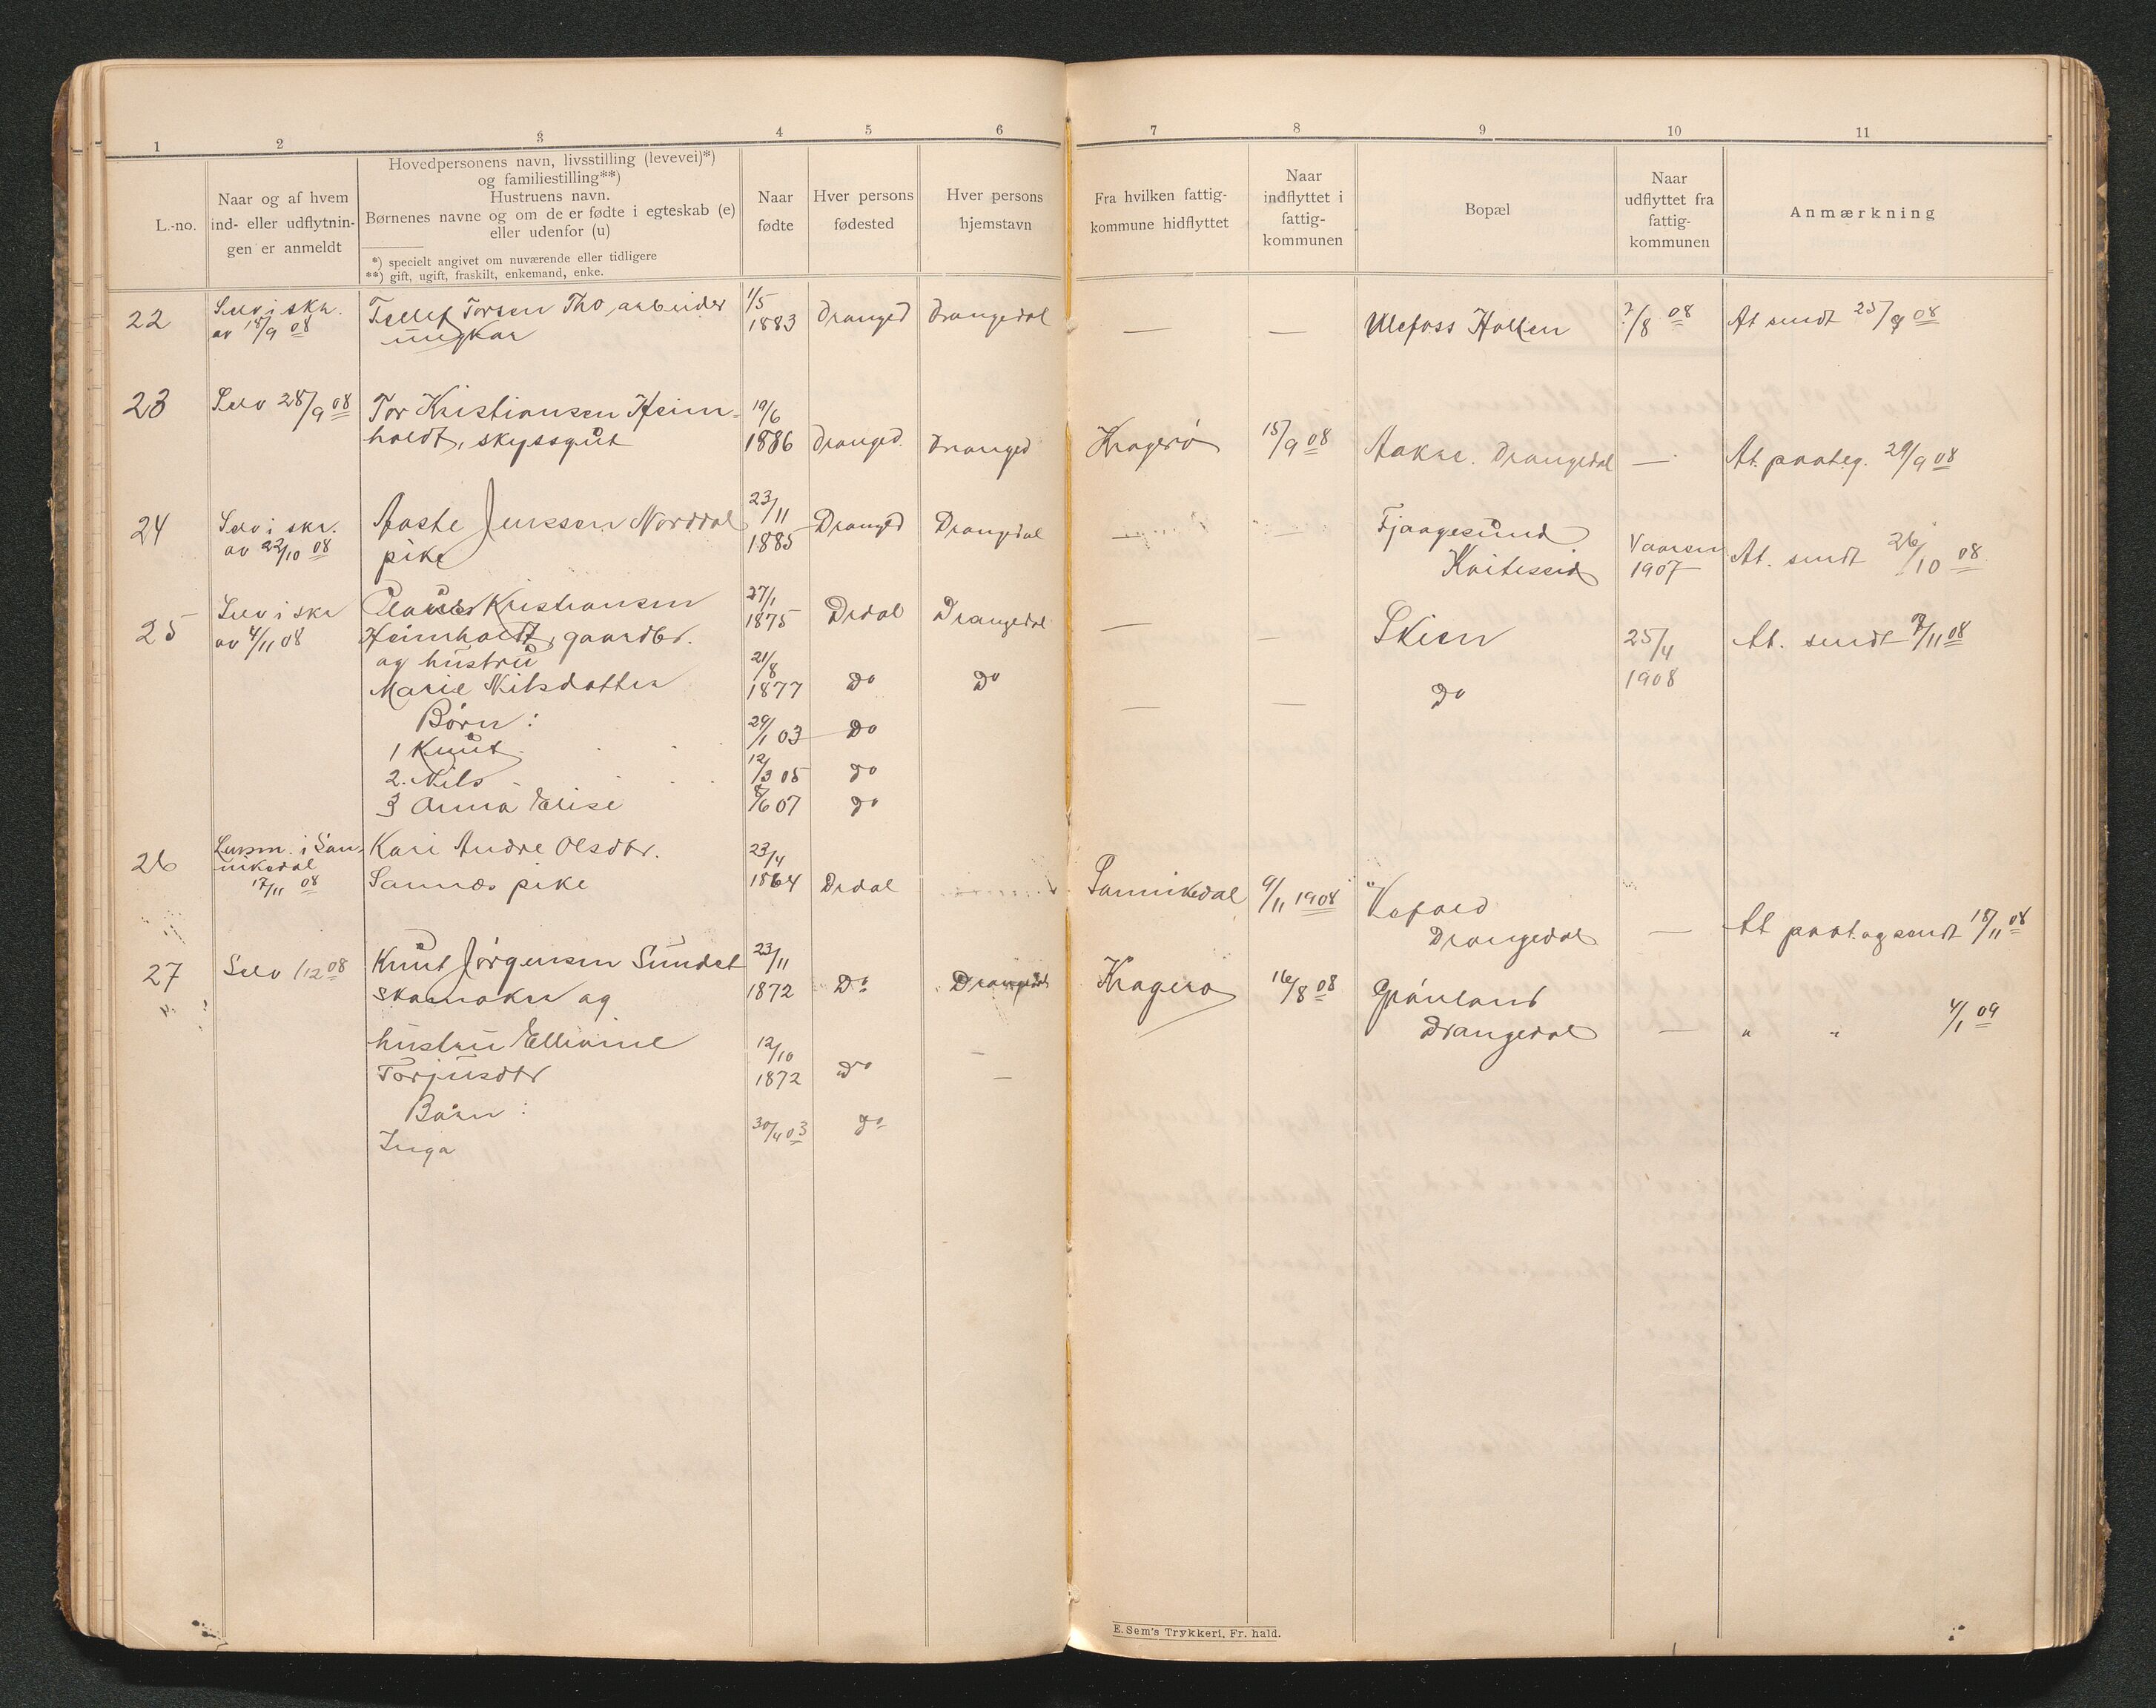 1 2 3 4 5 6 7 8 9 10 11
L.-no.
Naar og af hvem
ind- eller udflytnin-
gen er anmeldt
Hovedpersonens navn, livsstilling (levevei)*)
og familiestilling**)
Hustruens navn.
Børnenes navne og om de er fødte i egteskab (e)
eller udenfor (u)
*) specielt angivet om nuværende eller tidligere
**) gift, ugift, fraskilt, enkemand, enke.
Naar
fødte
Hver persons
fødested
Hver persons
hjemstavn
Fra hvilken fattig-
kommune hidflyttet
Naar
indflyttet i
fattig-
kommunen
Bopæl
Naar
udflyttet fra
fattig-
kommunen
Anmærkning
22
Selv i skr.
av 18/9 08
Tellef Torsen Tho, arbeider
ungkar
1/5
1883
Dranged
Drangedal
—
—
Ulefoss Hollen
?/8 08
At sendt 25/9 08
23
Selv 28/9 08
Tor Kristiansen Heim-
holdt, skyssgut
19/6
1886
Dranged.
Dranged
Kragerø
15/9 08
Aakre. Drangedal
—
At. paateg. 29/9 08
24
Selv i skr.
av 22/10 08
Aaste Jenssen Norddal
pike
23/11
1885
Dranged
Drangedal
—
—
Fjaagesund
Kviteseid
Vaaren
1907
At. sendt 26/10 08
25
Selv i skr
av 4/11 08
Claus Kristiansen
Heimholdt, gaardbr.
og hustru
Marie Nilsdatter
Børn:
1 Knut
2. Nils
3 Anna Elise
27/1
1875
21/8
1877
29/1 03
12/3 05
8/6 07
Drdal
Do
Do
Do
Do
Drangedal
Do
—
—
—
—
Skien
Do
25/4
1908
At. sendt 7/11 08
26
Lensm. i San-
nikedal
17/11 08
Kari Andre Olsdtr.
Sannes pike
23/4
1864
Drdal
Sannikedal
9/11 1908
Drangedal
—
At paat. og sendt 18/11 08
27
Selv /12 08
Knut Jørgensen Sundet
skomaker og
hustru Ellivine
Torjusdtr
Børn:
Inga
23/11
1872
12/10
1872
30/4 03
Do
Do
Do
Drangedal
—
—
Kragerø
16/8 08
Grønland
Drangedal
—
" " 4/1 09
E. Sem's Trykkeri, Fr. hald.